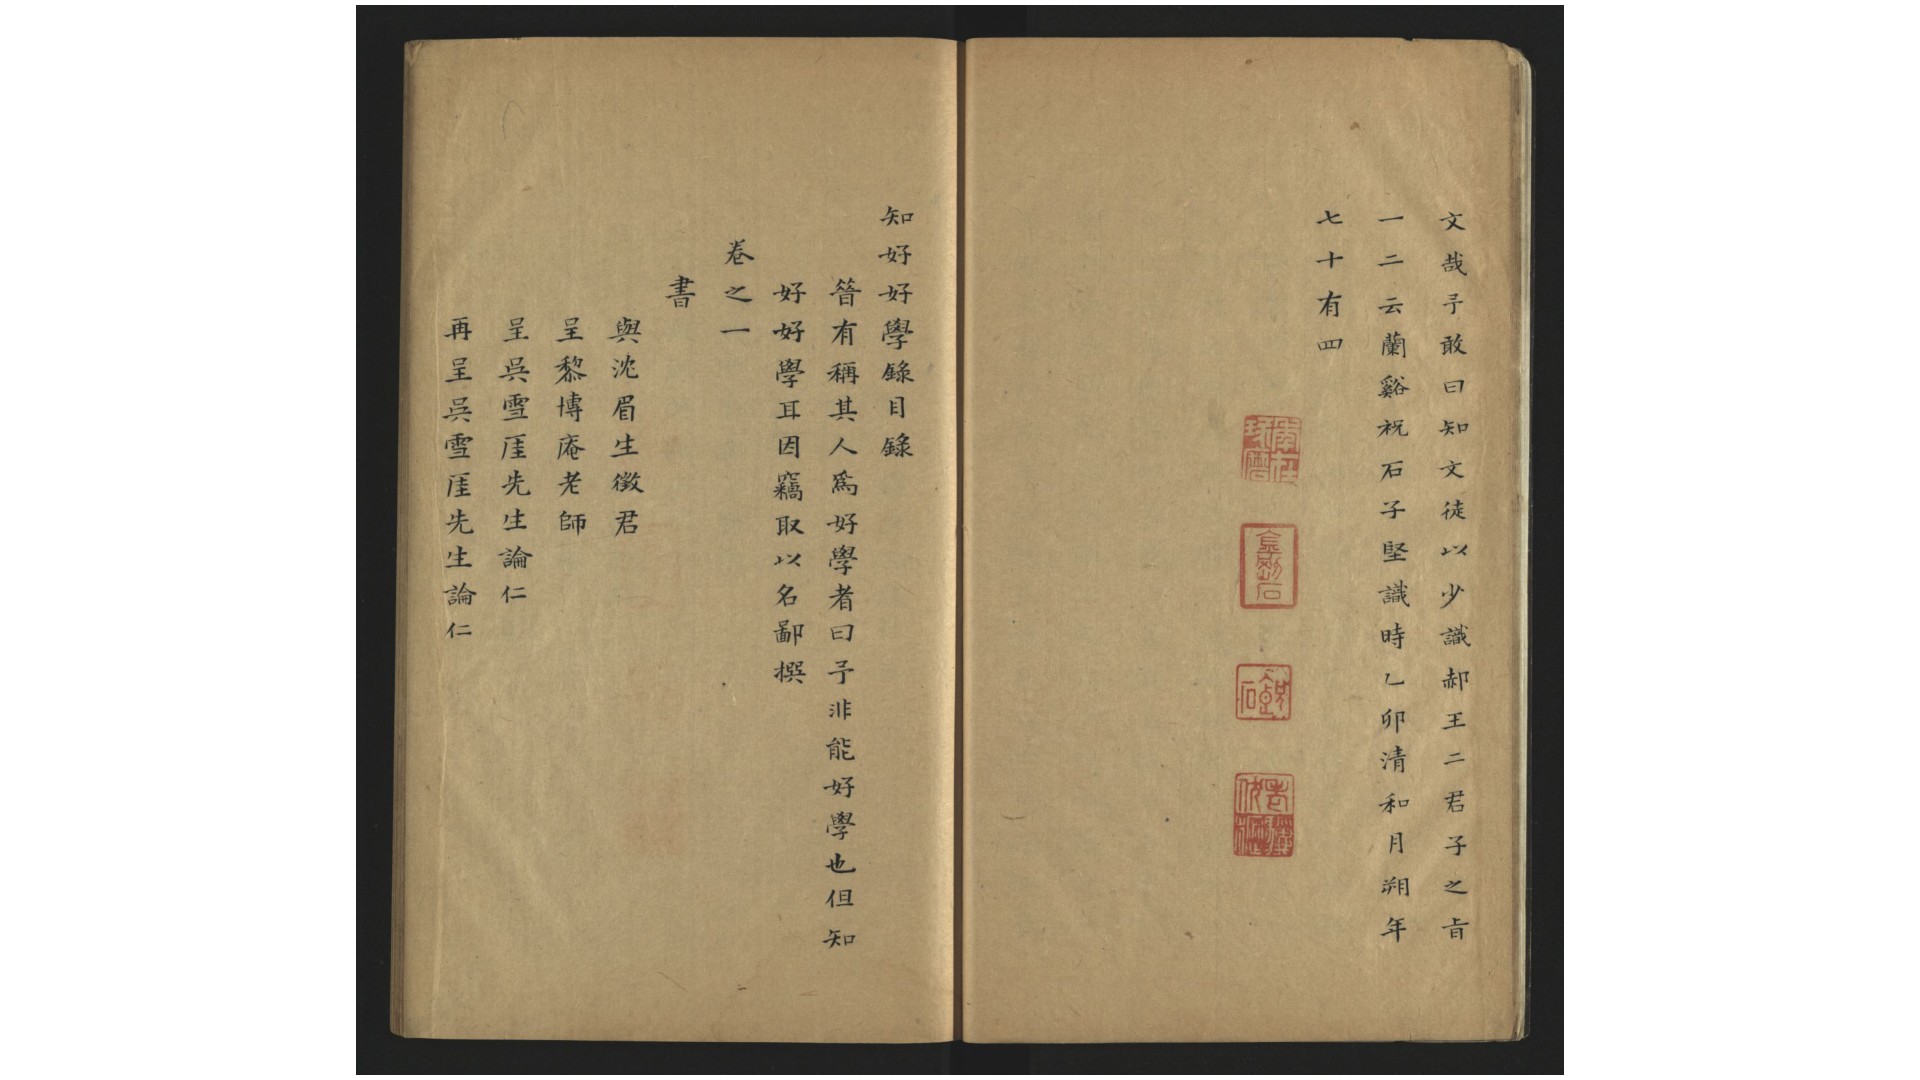 文哉予敢曰知文徒以少識郝王二君子之旨
一二云蘭谿祝石子堅識時乙卯清和月朔年
七十有四
知好好學錄目錄
昝有稱其人爲好學者曰予非能好學也但知
好好學耳因竊取以名鄙撰
卷之一
書
與沈眉生徵君
呈黎博庵老師
呈吳雪厓先生論仁
再呈吳雪厓先生論仁